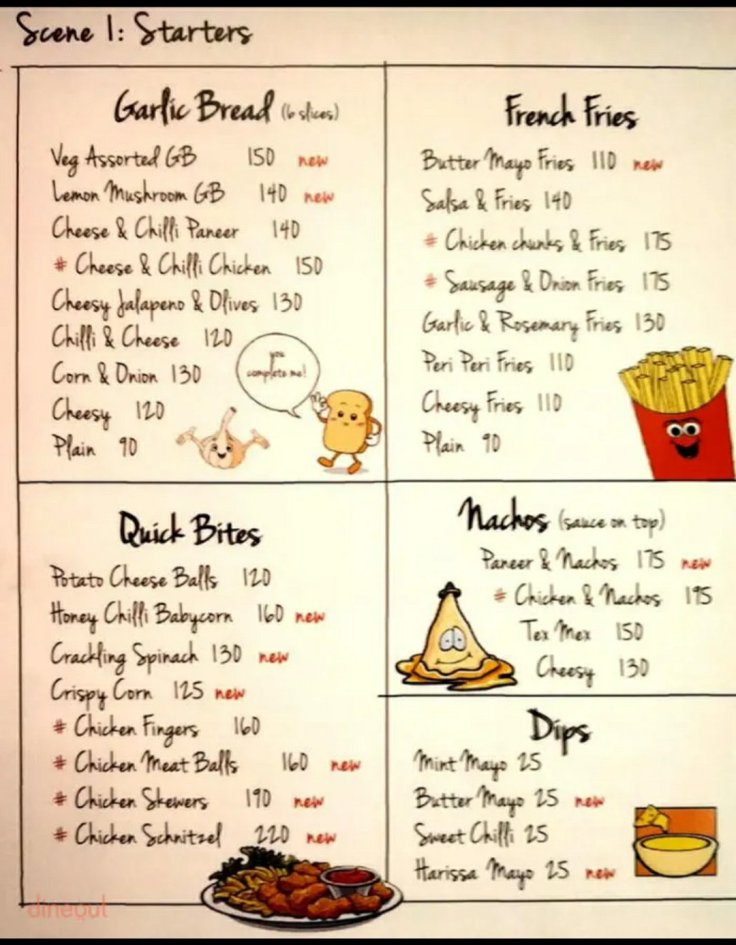 Scene 1: Starters
Garlic Bread (6 slices)
Veg Assorted GB 150 new
Lemon Mushroom GB 140 new
Cheese & Chilli Paneer 140
# Cheese & Chilli Chicken 150
Cheesy Jalapeno & Olives 130
Chilli & Cheese 120
Corn & Onion 130
Cheesy 120
Plain 90
you
complete me!
French Fries
Butter Mayo Fries 110 new
Salsa & Fries 140
# Chicken chunks & Fries 175
# Sausage & Onion Fries 175
Garlic & Rosemary Fries 130
Peri Peri Fries 110
Cheesy Fries 110
Plain 90
Quick Bites
Potato Cheese Balls 120
Honey Chilli Babycorn 160 new
Crackling Spinach 130 new
Crispy Corn 125 new
# Chicken Fingers 160
# Chicken Meat Balls 160 new
# Chicken Skewers 190 new
# Chicken Schnitzel 220 new
Nachos (sauce on top)
Paneer & Nachos 175 new
# Chicken & Nachos 195
Tex Mex 150
Cheesy 130
Dips
Mint Mayo 25
Butter Mayo 25 new
Sweet Chilli 25
Harissa Mayo 25 new
dineout